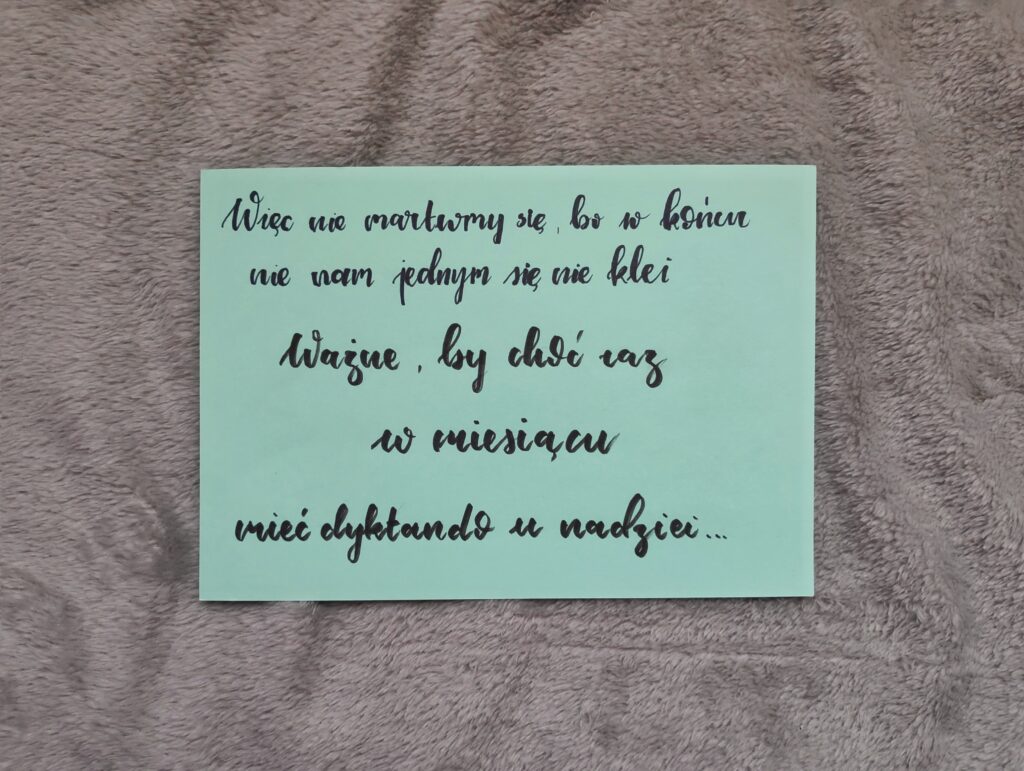 Więc nie martwmy się, bo w końcu
nie nam jednym się nie klei
Ważne, by choć raz
w miesiącu
mieć dyktando u nadziei...